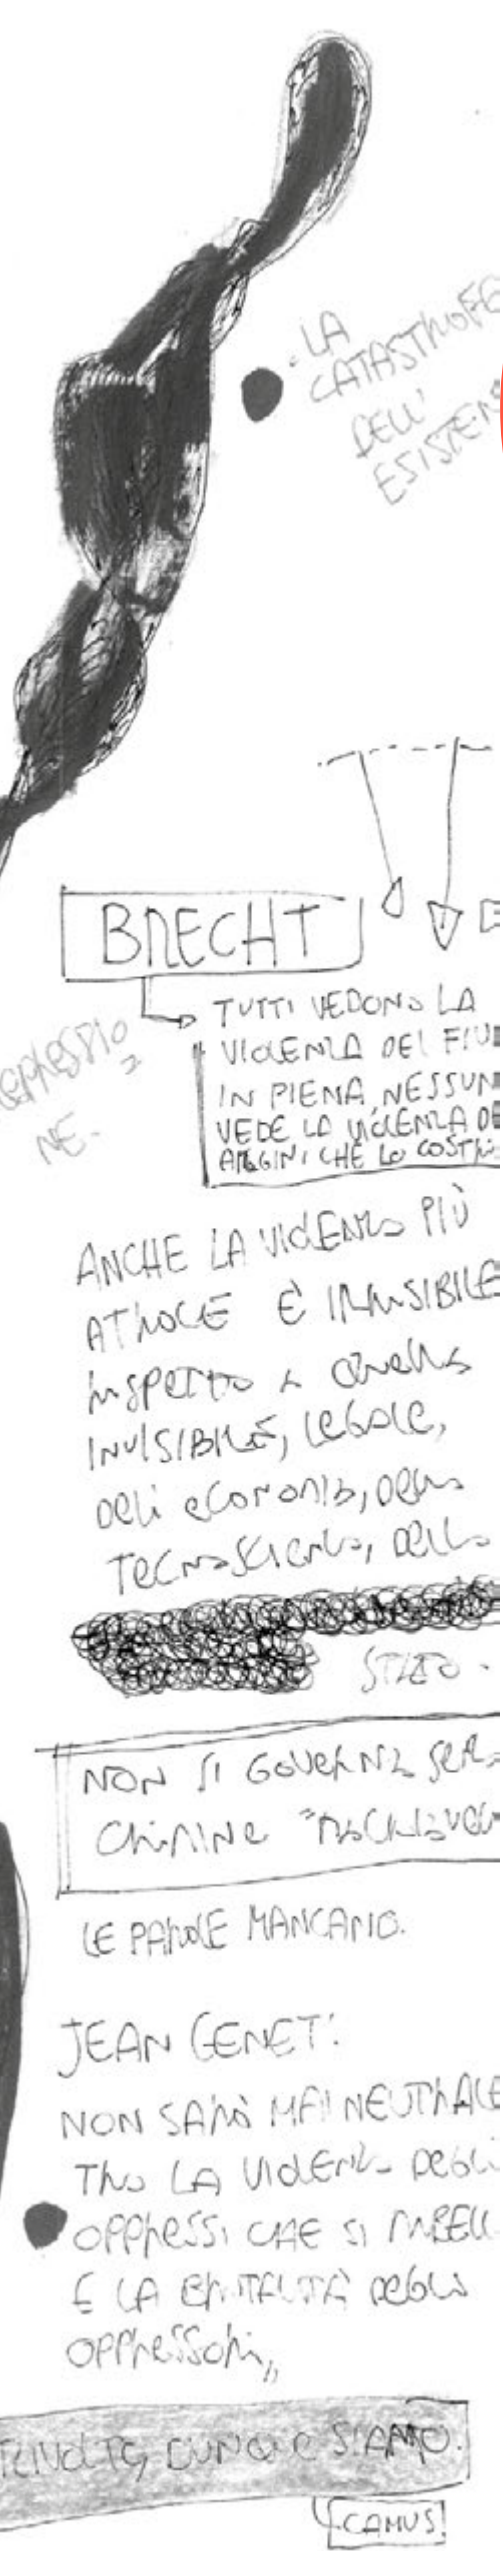 LA
CATASTROFE
DELL'
ESISTEN
BRECHT
TUTTI VEDONO LA
VIOLENZA DEL FIUM
IN PIENA, NESSUN
VEDE LA VIOLENZA DE
ARGINI CHE LO COSTRI
REPRESSIO
NE.
ANCHE LA VIOLENZA PIÙ
ATROCE È
RISPETTO A QUELLA
INVISIBILE, LEGALE,
DELL'ECONOMIA, DELLA
TECNOSCIENZA, DELLO
STATO.
NON SI GOVERNA SEN
CRIMINE "MACHIAVEL
LE PAROLE MANCANO.
JEAN GENET:
NON SARÒ MAI NEUTRALE
TRA LA VIOLENZA DEGLI
OPPRESSI CHE SI RIBELL
E LA BRUTALITÀ DEGLI
OPPRESSORI"
RIVOLTO, DUNQUE SIAMO.
CAMUS!